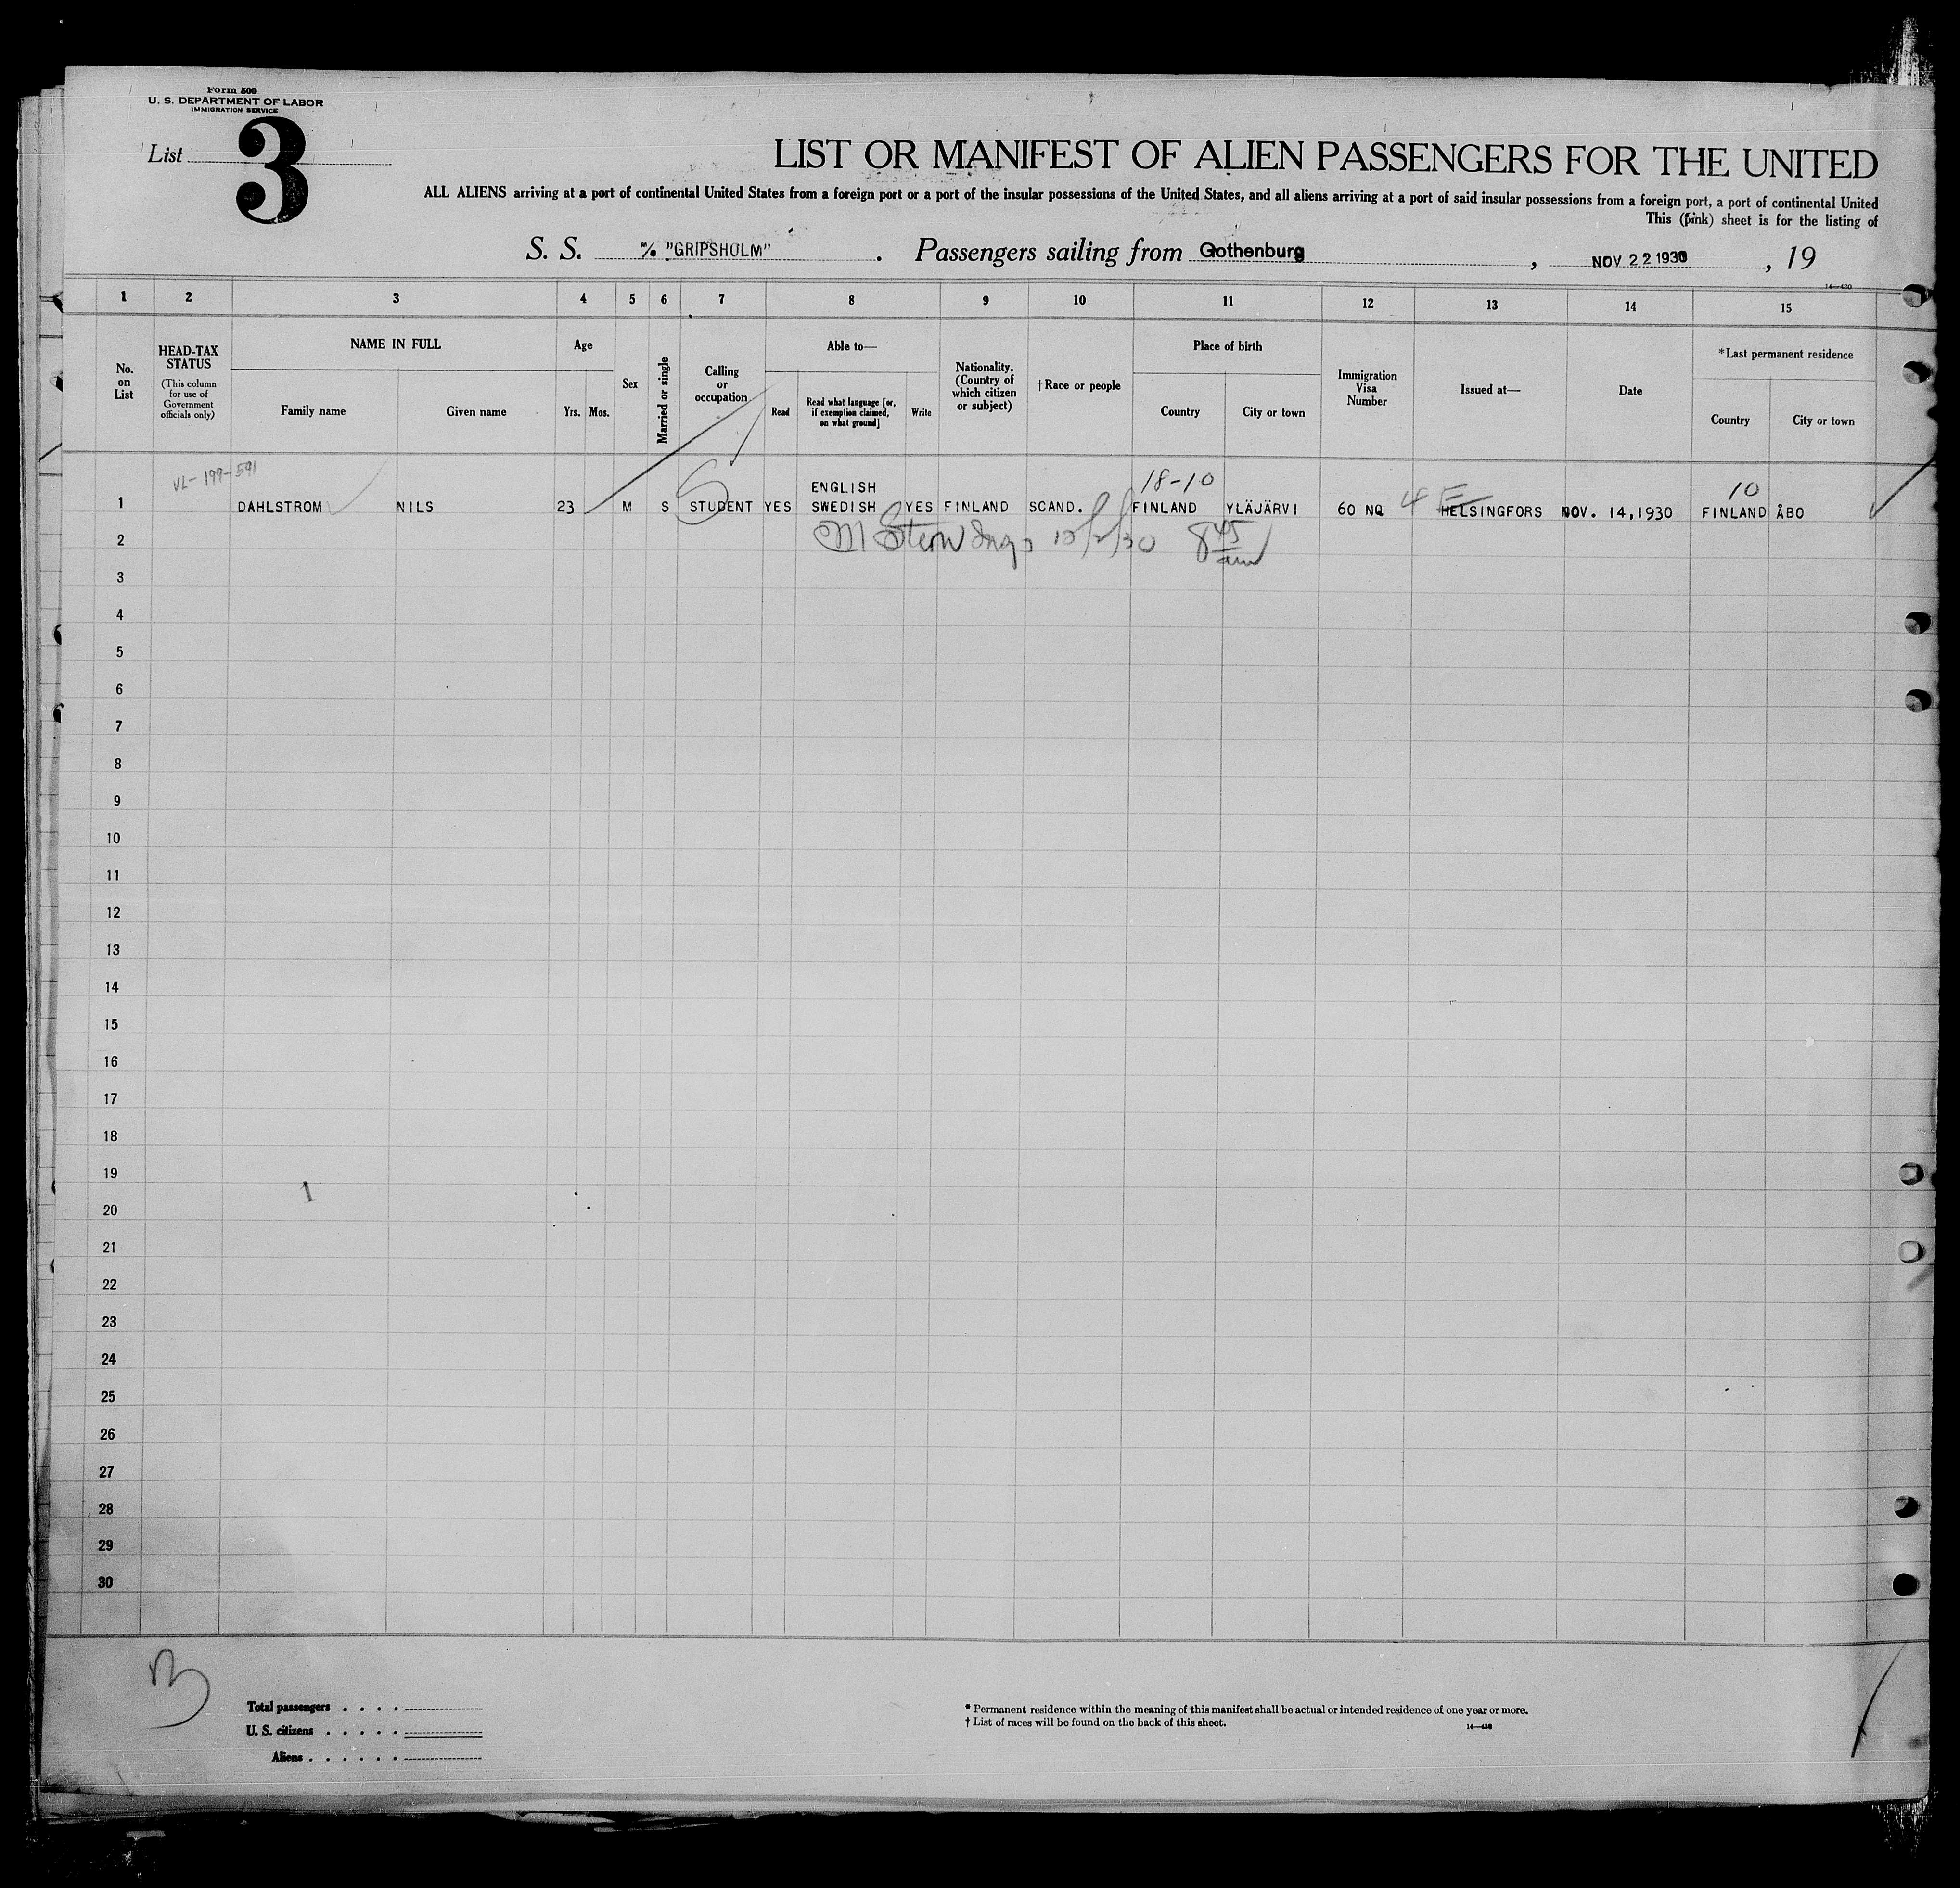 Form 500
U. S. DEPARTMENT OF LABOR
IMMIGRATION SERVICE
List 3
LIST OR MANIFEST OF ALIEN PASSENGERS FOR THE UNITED
ALL ALIENS arriving at a port of continental United States from a foreign port or a port of the insular possessions of the United States, and all aliens arriving at a port of said insular possessions from a foreign port, a port of continental United
This (pink) sheet is for the listing of
S. S. "GRIPSHOLM". Passengers sailing from Gothenburg, NOV 22 1930, 19
14—430
1 2 3 4 5 6 7 8 9 10 11 12 13 14 15
No. on List
HEAD-TAX STATUS
(This column for use of Government officials only)
NAME IN FULL
Family name
Given name
Age
Yrs. Mos.
Sex
Married or single
Calling or occupation
Able to—
Read
Read what language [or, if exemption claimed, on what ground]
Write
Nationality. (Country of which citizen or subject)
†Race or people
Place of birth
Country
City or town
Immigration Visa Number
Issued at—
Date
*Last permanent residence
Country
City or town
VL-199-591
18-10
10
ENGLISH
1 DAHLSTROM NILS 23 M S STUDENT YES SWEDISH YES FINLAND SCAND. FINLAND YLÄJÄRVI 60 NQ 4 E HELSINGFORS NOV. 14,1930 FINLAND ÅBO
2 M Stern Insp 12/2/30 8 45 am
3
4
5
6
7
8
9
10
11
12
13
14
15
16
17
18
19
20
21
22
23
24
25
26
27
28
29
30
Total passengers . . . .
U. S. citizens . . . . .
Aliens . . . . . .
* Permanent residence within the meaning of this manifest shall be actual or intended residence of one year or more.
† List of races will be found on the back of this sheet.
14—430